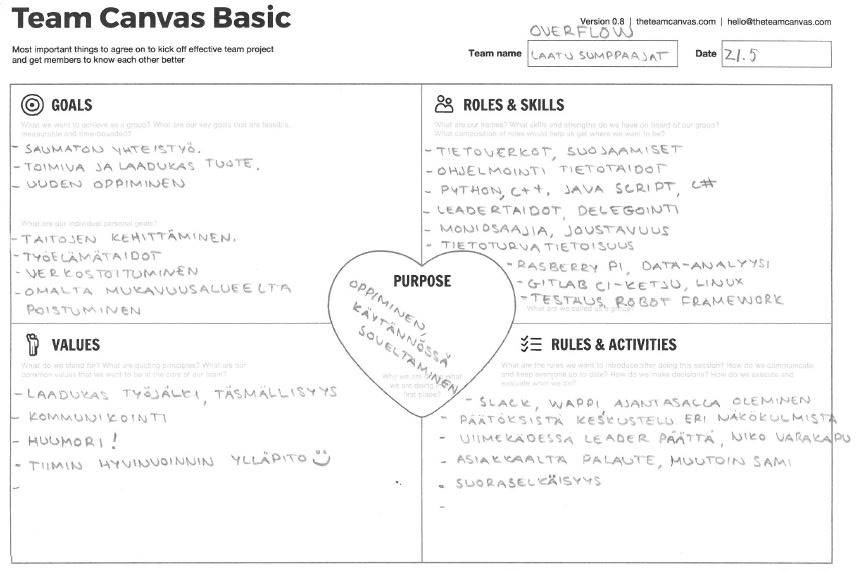 Team Canvas Basic
Most important things to agree on to kick off effective team project
and get members to know each other better
Version 0.8 | theteamcanvas.com | hello@theteamcanvas.com
OVERFLOW
Team name LAATU SUMPPAAJAT
Date 21.5
GOALS
What we want to achieve as a group? What are our key goals that are feasible,
measurable and time-bounded?
- SAUMATON YHTEISTYÖ.
- TOIMIVA JA LAADUKAS TUOTE.
- UUDEN OPPIMINEN
What are our individual personal goals?
- TAITOJEN KEHITTÄMINEN.
- TYÖELÄMÄTAIDOT
- VERKOSTOITUMINEN
- OMALTA MUKAVUUSALUEELTA
POISTUMINEN
ROLES & SKILLS
What are our names? What skills and strengths do we have on board of our group?
What composition of roles would help us get where we want to be?
- TIETOVERKOT, SUOJAAMISET
- OHJELMOINTI TIETOTAIDOT
- PYTHON, C++, JAVA SCRIPT, C#
- LEADERTAIDOT, DELEGOINTI
- MONIOSAAJIA, JOUSTAVUUS
- TIETOTURVATIETOISUUS
- RASBERRY PI, DATA-ANALYYSI
- GITLAB CI-KETJU, LINUX
- TESTAUS, ROBOT FRAMEWORK
What are we called as a group?
PURPOSE
OPPIMINEN,
KÄYTÄNNÖSSÄ
SOVELTAMINEN
Why we are doing what
we are doing in the
first place?
VALUES
What do we stand for? What are guiding principles? What are our
common values that we want to be at the core of our team?
- LAADUKAS TYÖJÄLKI, TÄSMÄLLISYYS
- KOMMUNIKOINTI
- HUUMORI!
- TIIMIN HYVINVOINNIN YLLÄPITO
-
RULES & ACTIVITIES
What are the rules we want to introduce after doing this session? How do we communicate
and keep everyone up to date? How do we make decisions? How do we execute and
evaluate what we do?
- SLACK, WAPPI, AJANTASALLA OLEMINEN
- PÄÄTÖKSISTÄ KESKUSTELU ERI NÄKÖKULMISTA
- VIIMEKÄDESSÄ LEADER PÄÄTTÄ, NIKO VARAKAPU
- ASIAKKAALTA PALAUTE, MUUTOIN SAMI
- SUORASELKÄISYYS
-